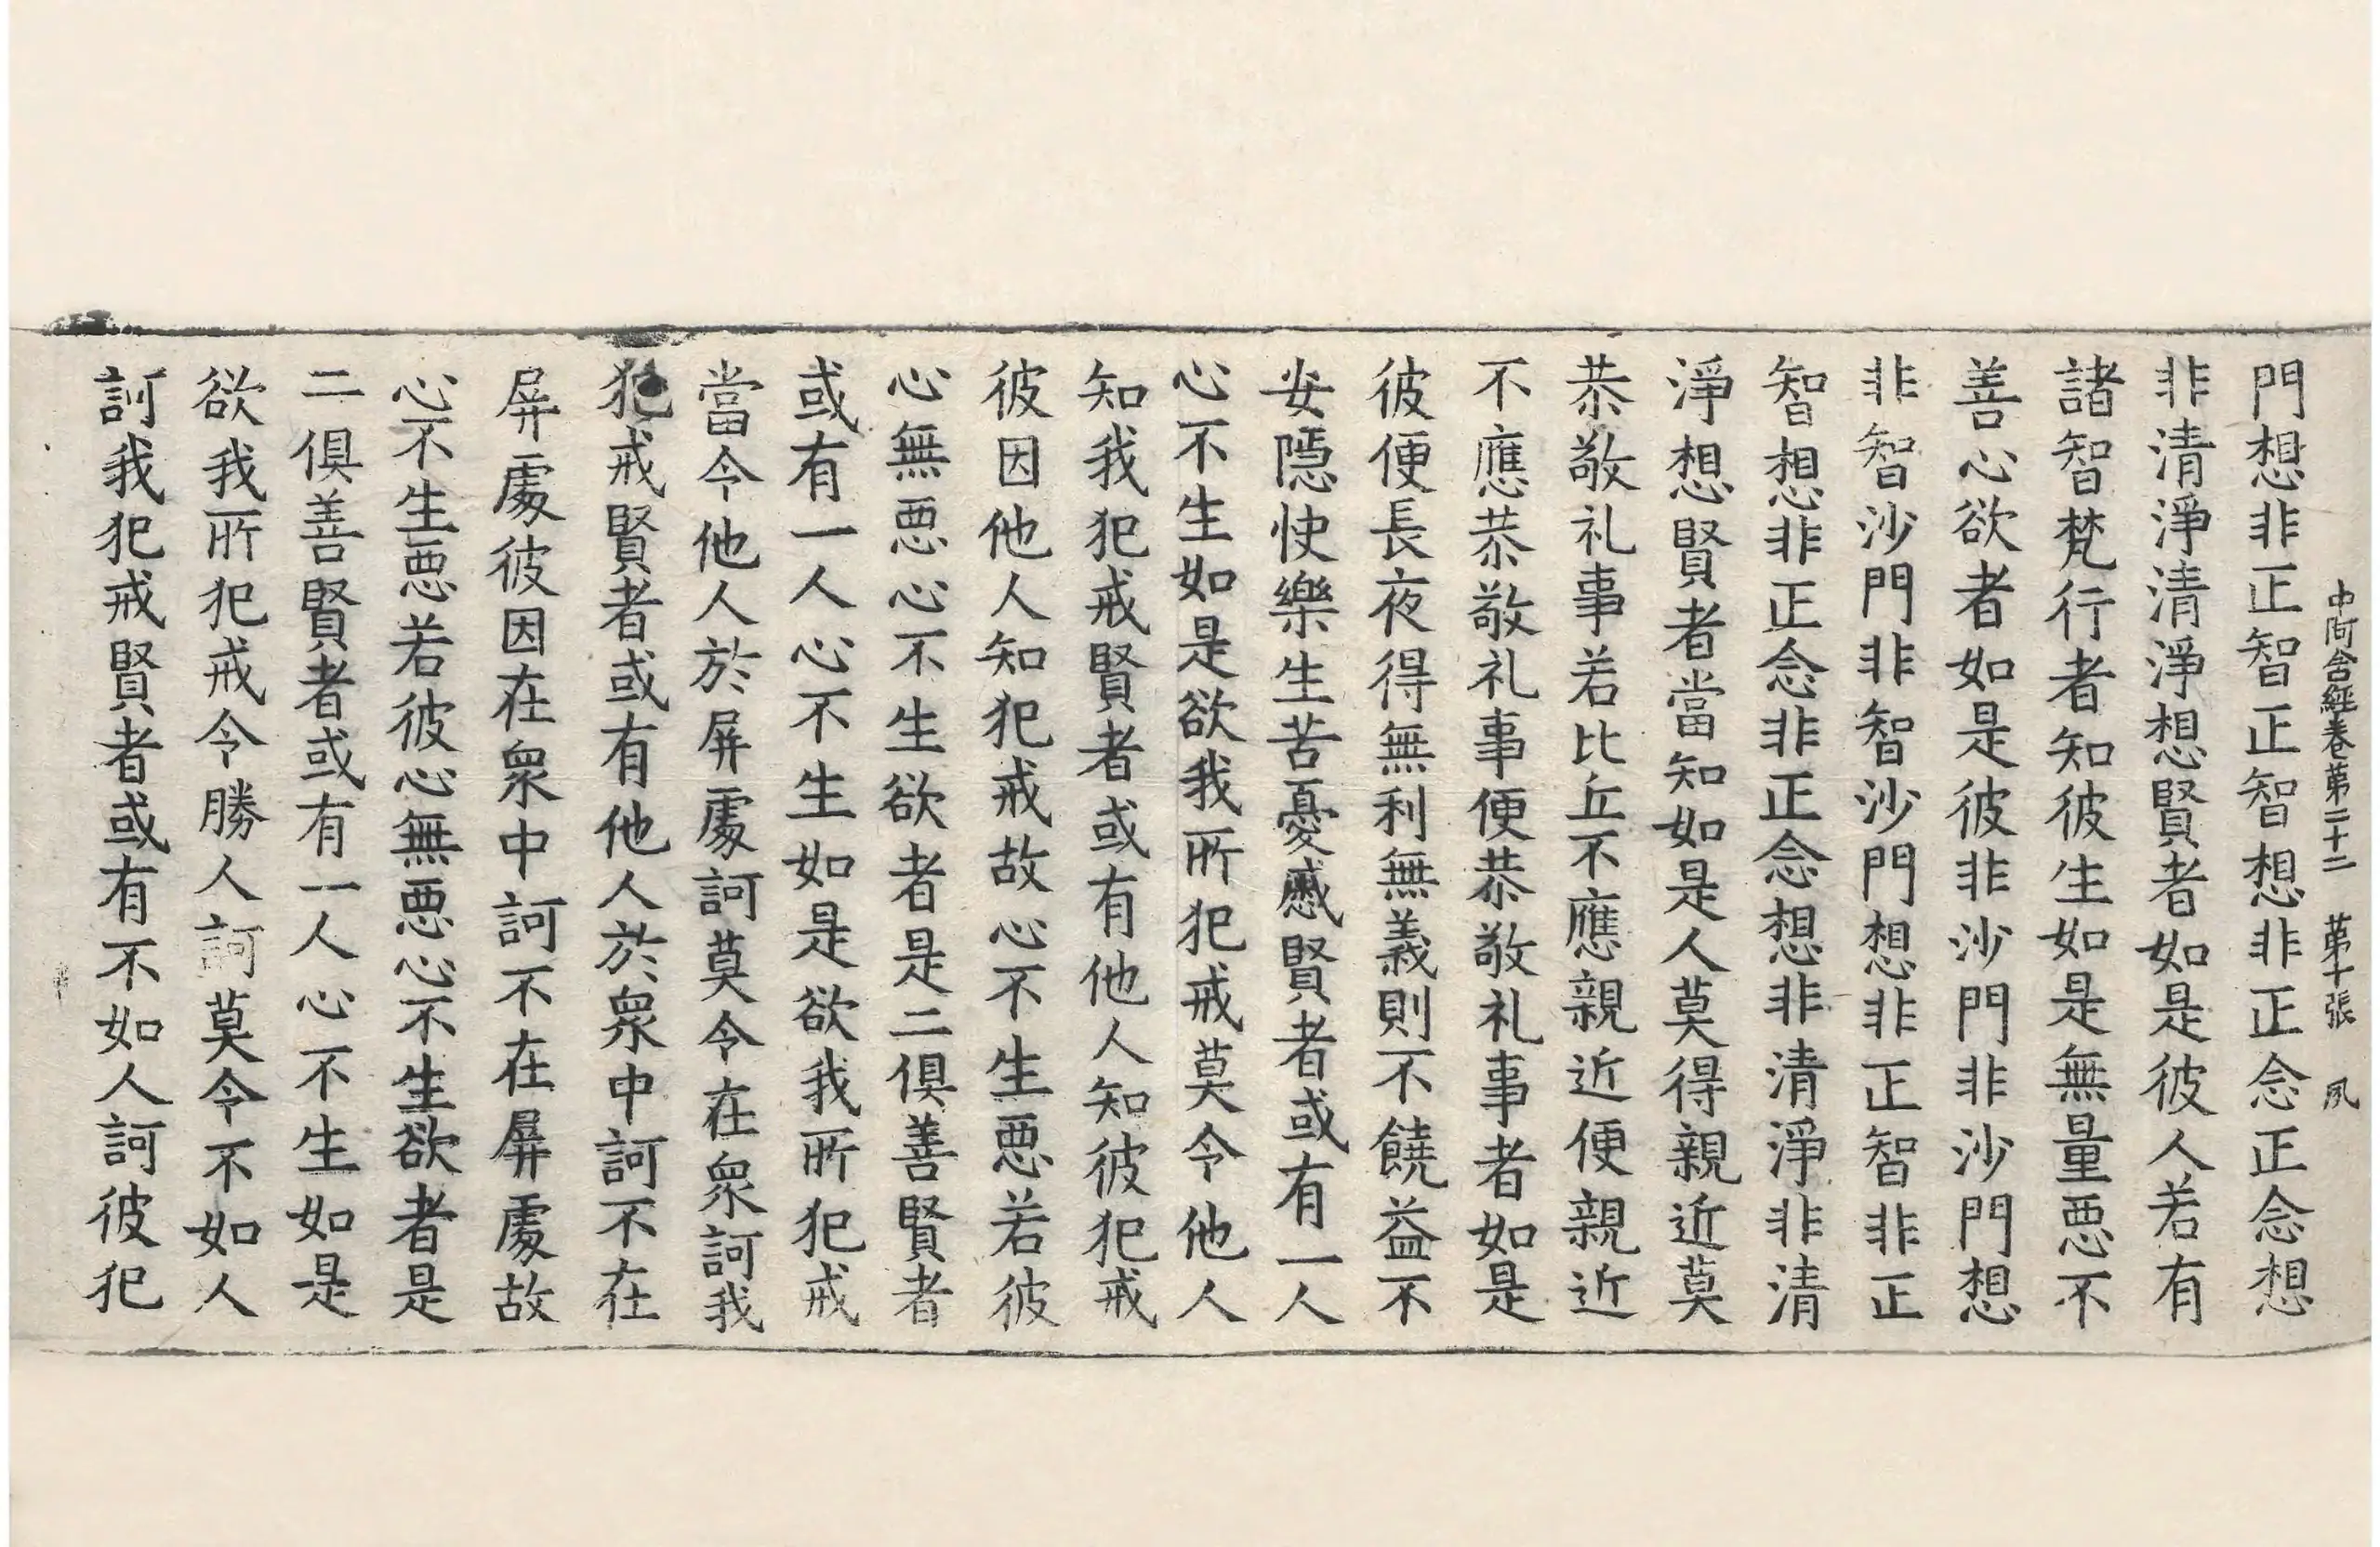 中阿含經卷第二十二 第十張 夙
門想非正智正智想非正念正念想
非清淨清淨想賢者如是彼人若有
諸智梵行者知彼生如是無量惡不
善心欲者如是彼非沙門非沙門想
非智沙門非智沙門想非正智非正
智想非正念非正念想非清淨非清
淨想賢者當知如是人莫得親近莫
恭敬礼事若比丘不應親近便親近
不應恭敬礼事便恭敬礼事者如是
彼便長夜得無利無義則不饒益不
安隱快樂生苦憂慼賢者或有一人
心不生如是欲我所犯戒莫令他人
知我犯戒賢者或有他人知彼犯戒
彼因他人知犯戒故心不生惡若彼
心無惡心不生欲者是二俱善賢者
或有一人心不生如是欲我所犯戒
當令他人於屏處訶莫令在衆訶我
犯戒賢者或有他人於衆中訶不在
屏處彼因在衆中訶不在屏處故
心不生惡若彼心無惡心不生欲者是
二俱善賢者或有一人心不生如是
欲我所犯戒令勝人訶莫令不如人
訶我犯戒賢者或有不如人訶彼犯